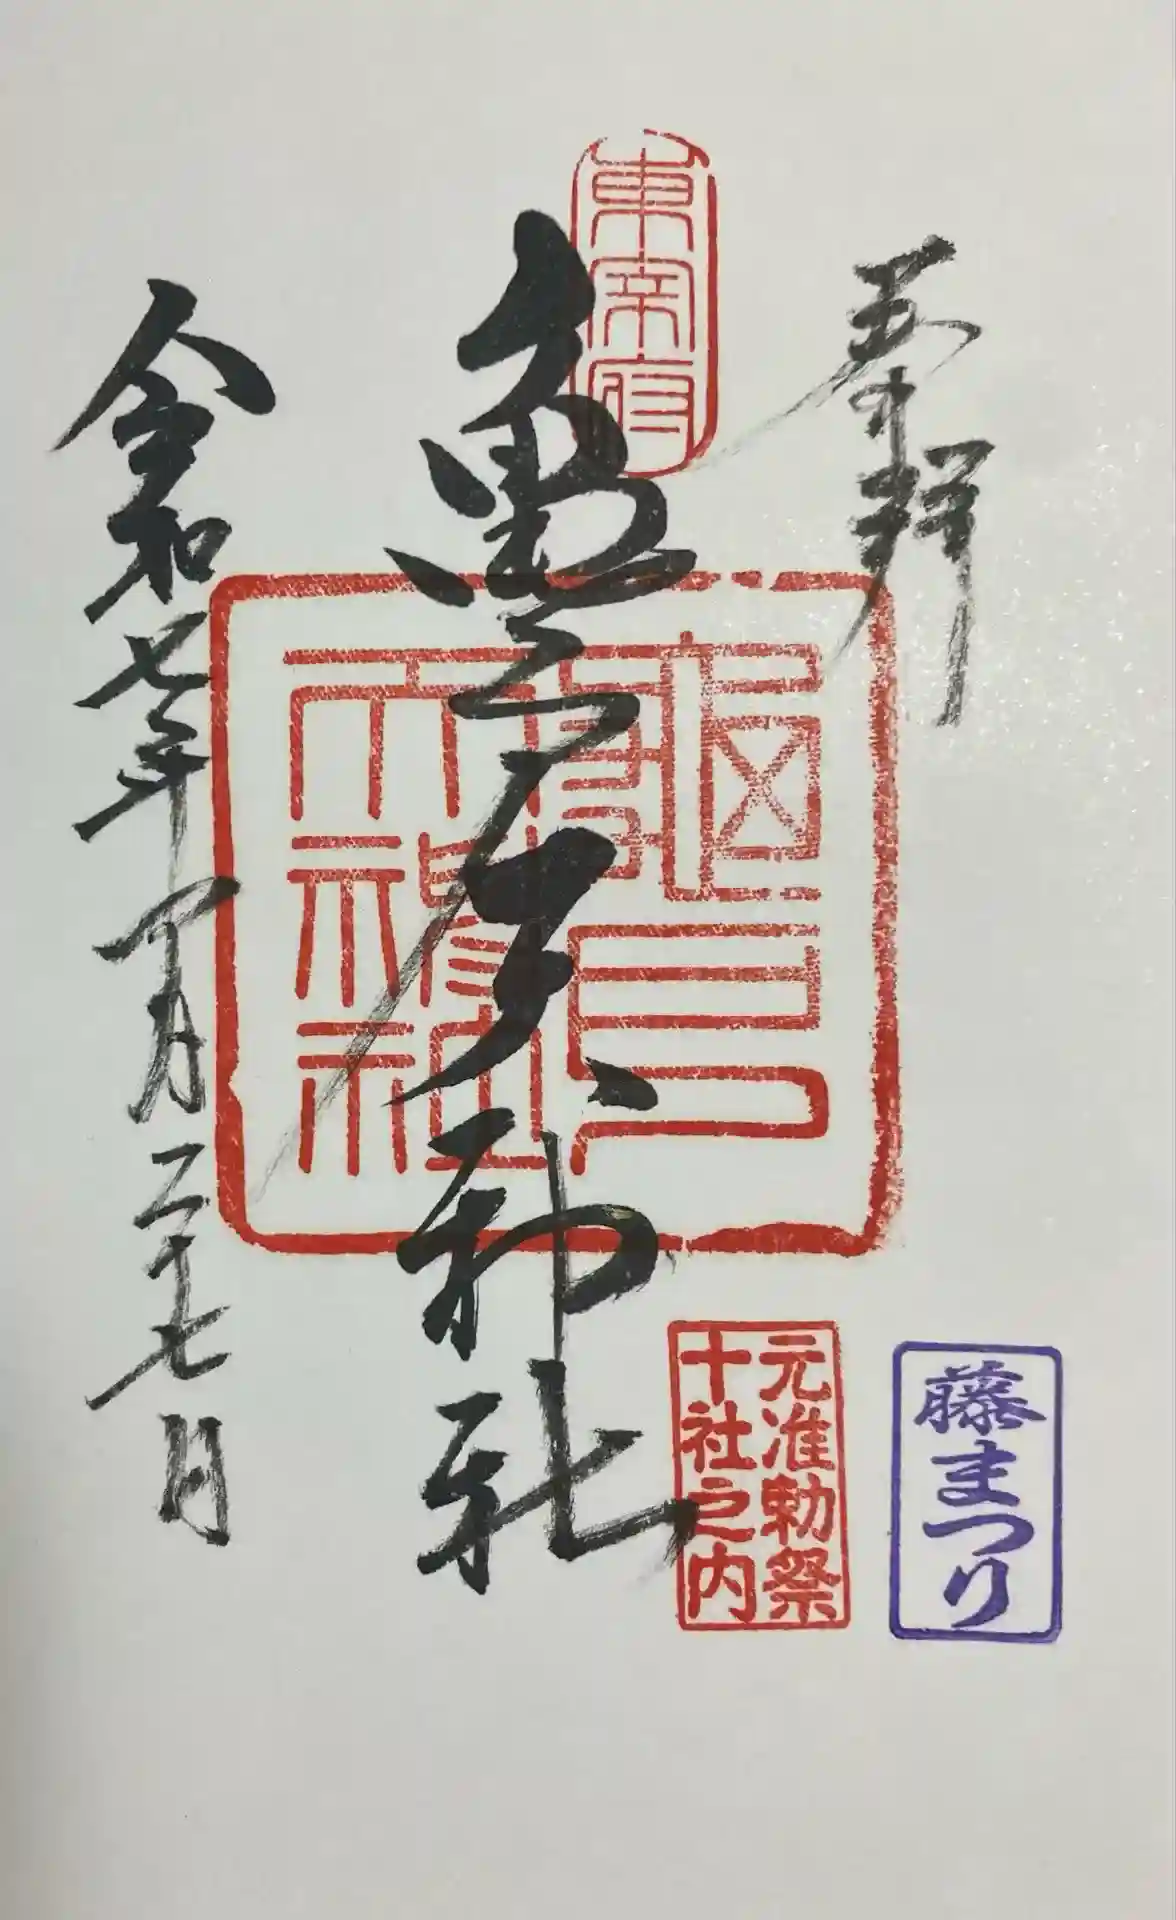 奉拝
東宰府
亀戸天神社
龜戸
天神社
令和七年四月二十七日
元准勅祭
十社之内
藤まつり